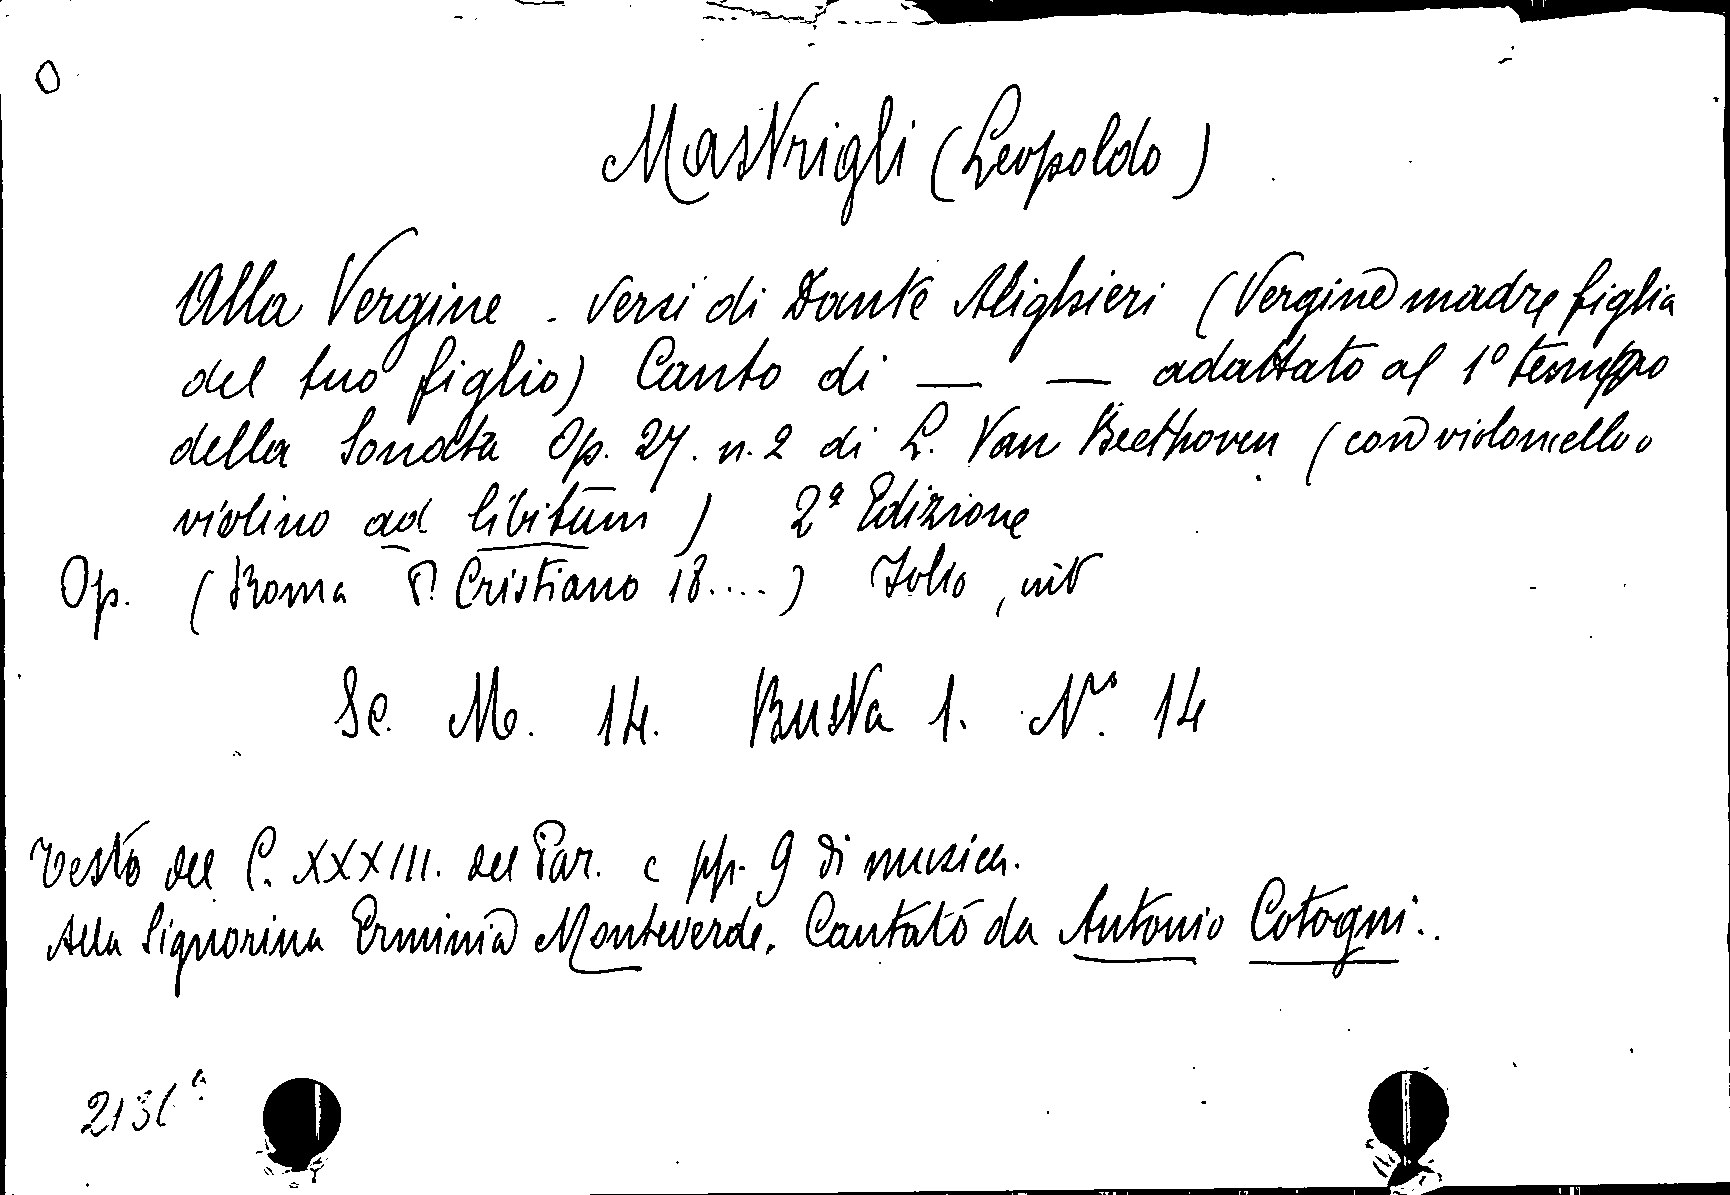 O
Mastrigli (Leopoldo)
Alla Vergine. Versi di Dante Alighieri (Vergine madre figlia
del tuo figlio) Canto di — — adattato al 1º tempo
della Sonata Op. 27. n. 2 di L. Van Beethoven (con violoncello o
violino ad libitum) 2ª Edizione
Op. (Roma P. Cristiano 18....) Folio,
Sc. M. 14. Busta 1. Nº. 14
Testo del C. XXXIII. del Par. e pp. 9 di musica.
Alla Signorina Erminia Monteverde. Cantato da Antonio Cotogni.